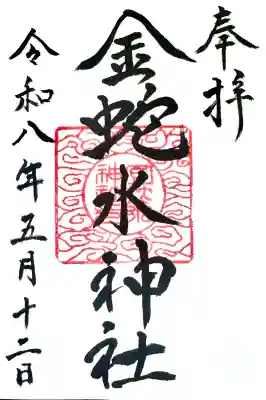 奉拝
金蛇水神社
令和八年五月十二日